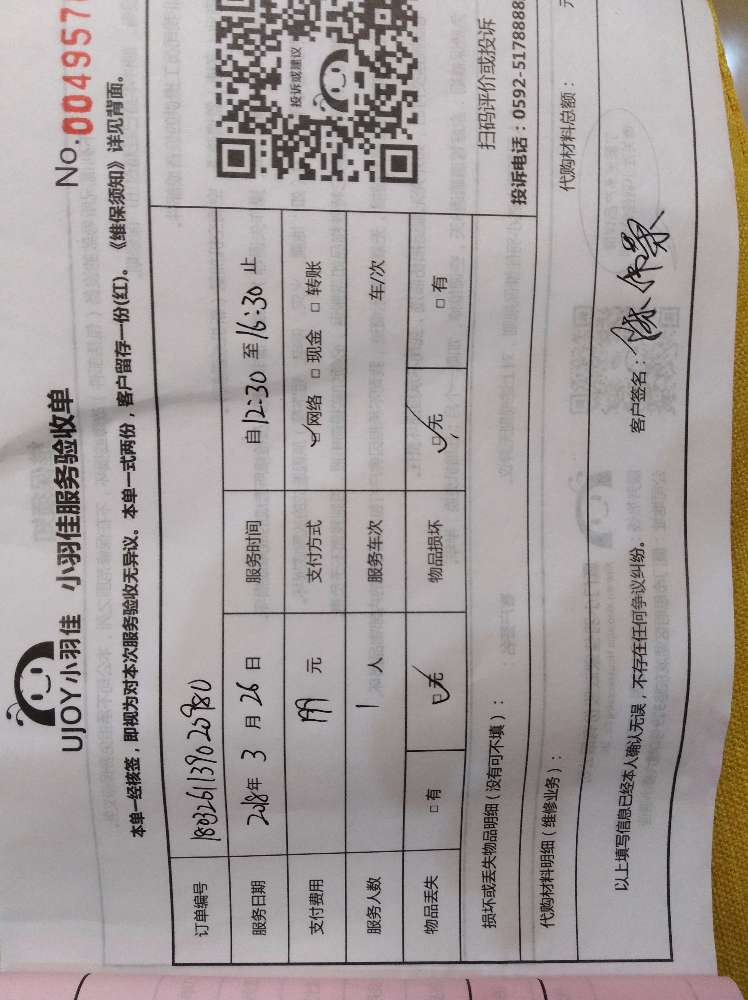 UJOY小羽佳 小羽佳服务验收单
No.
本单一经核签，即视为对本次服务验收无异议。本单一式两份，客户留存一份(红)。《维保须知》详见背面。
订单编号
服务日期 2018年 3 月 26 日 服务时间 自12:30 至 16:30 止
支付费用 199 元 支付方式 ☑网络 □现金 □转账
服务人数 1 人 服务车次 车/次
物品丢失 □有 ☑无 物品损坏 ☑无 □有
投诉或建议
扫码评价或投诉
投诉电话：0592-5178888
损坏或丢失物品明细（没有可不填）：
代购材料明细（维修业务）： 代购材料总额： 元
以上填写信息已经本人确认无误，不存在任何争议纠纷。 客户签名：